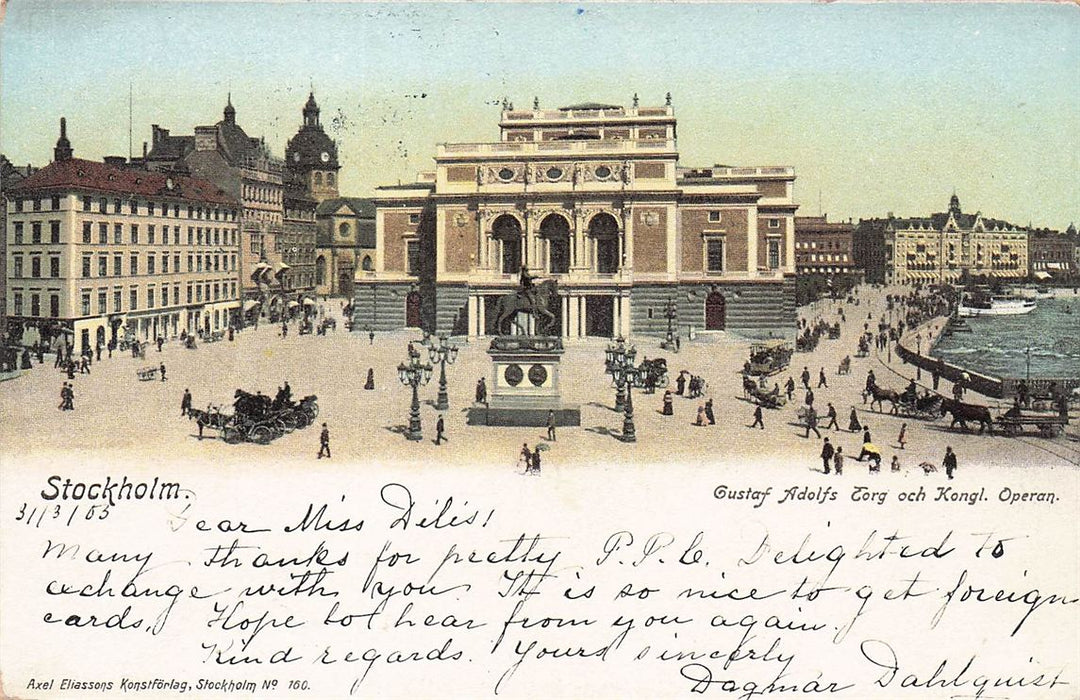 Stockholm.
Gustaf Adolfs Torg och Kongl. Operan.
31/3/03
Dear Miss Dilis!
Many thanks for pretty P.P.C. Delighted to
exchange with you. It is so nice to get foreign
cards, Hope to hear from you again.
Kind regards. Yours sincerely
Dagmar Dahlquist
Axel Eliassons Konstförlag, Stockholm No 160.